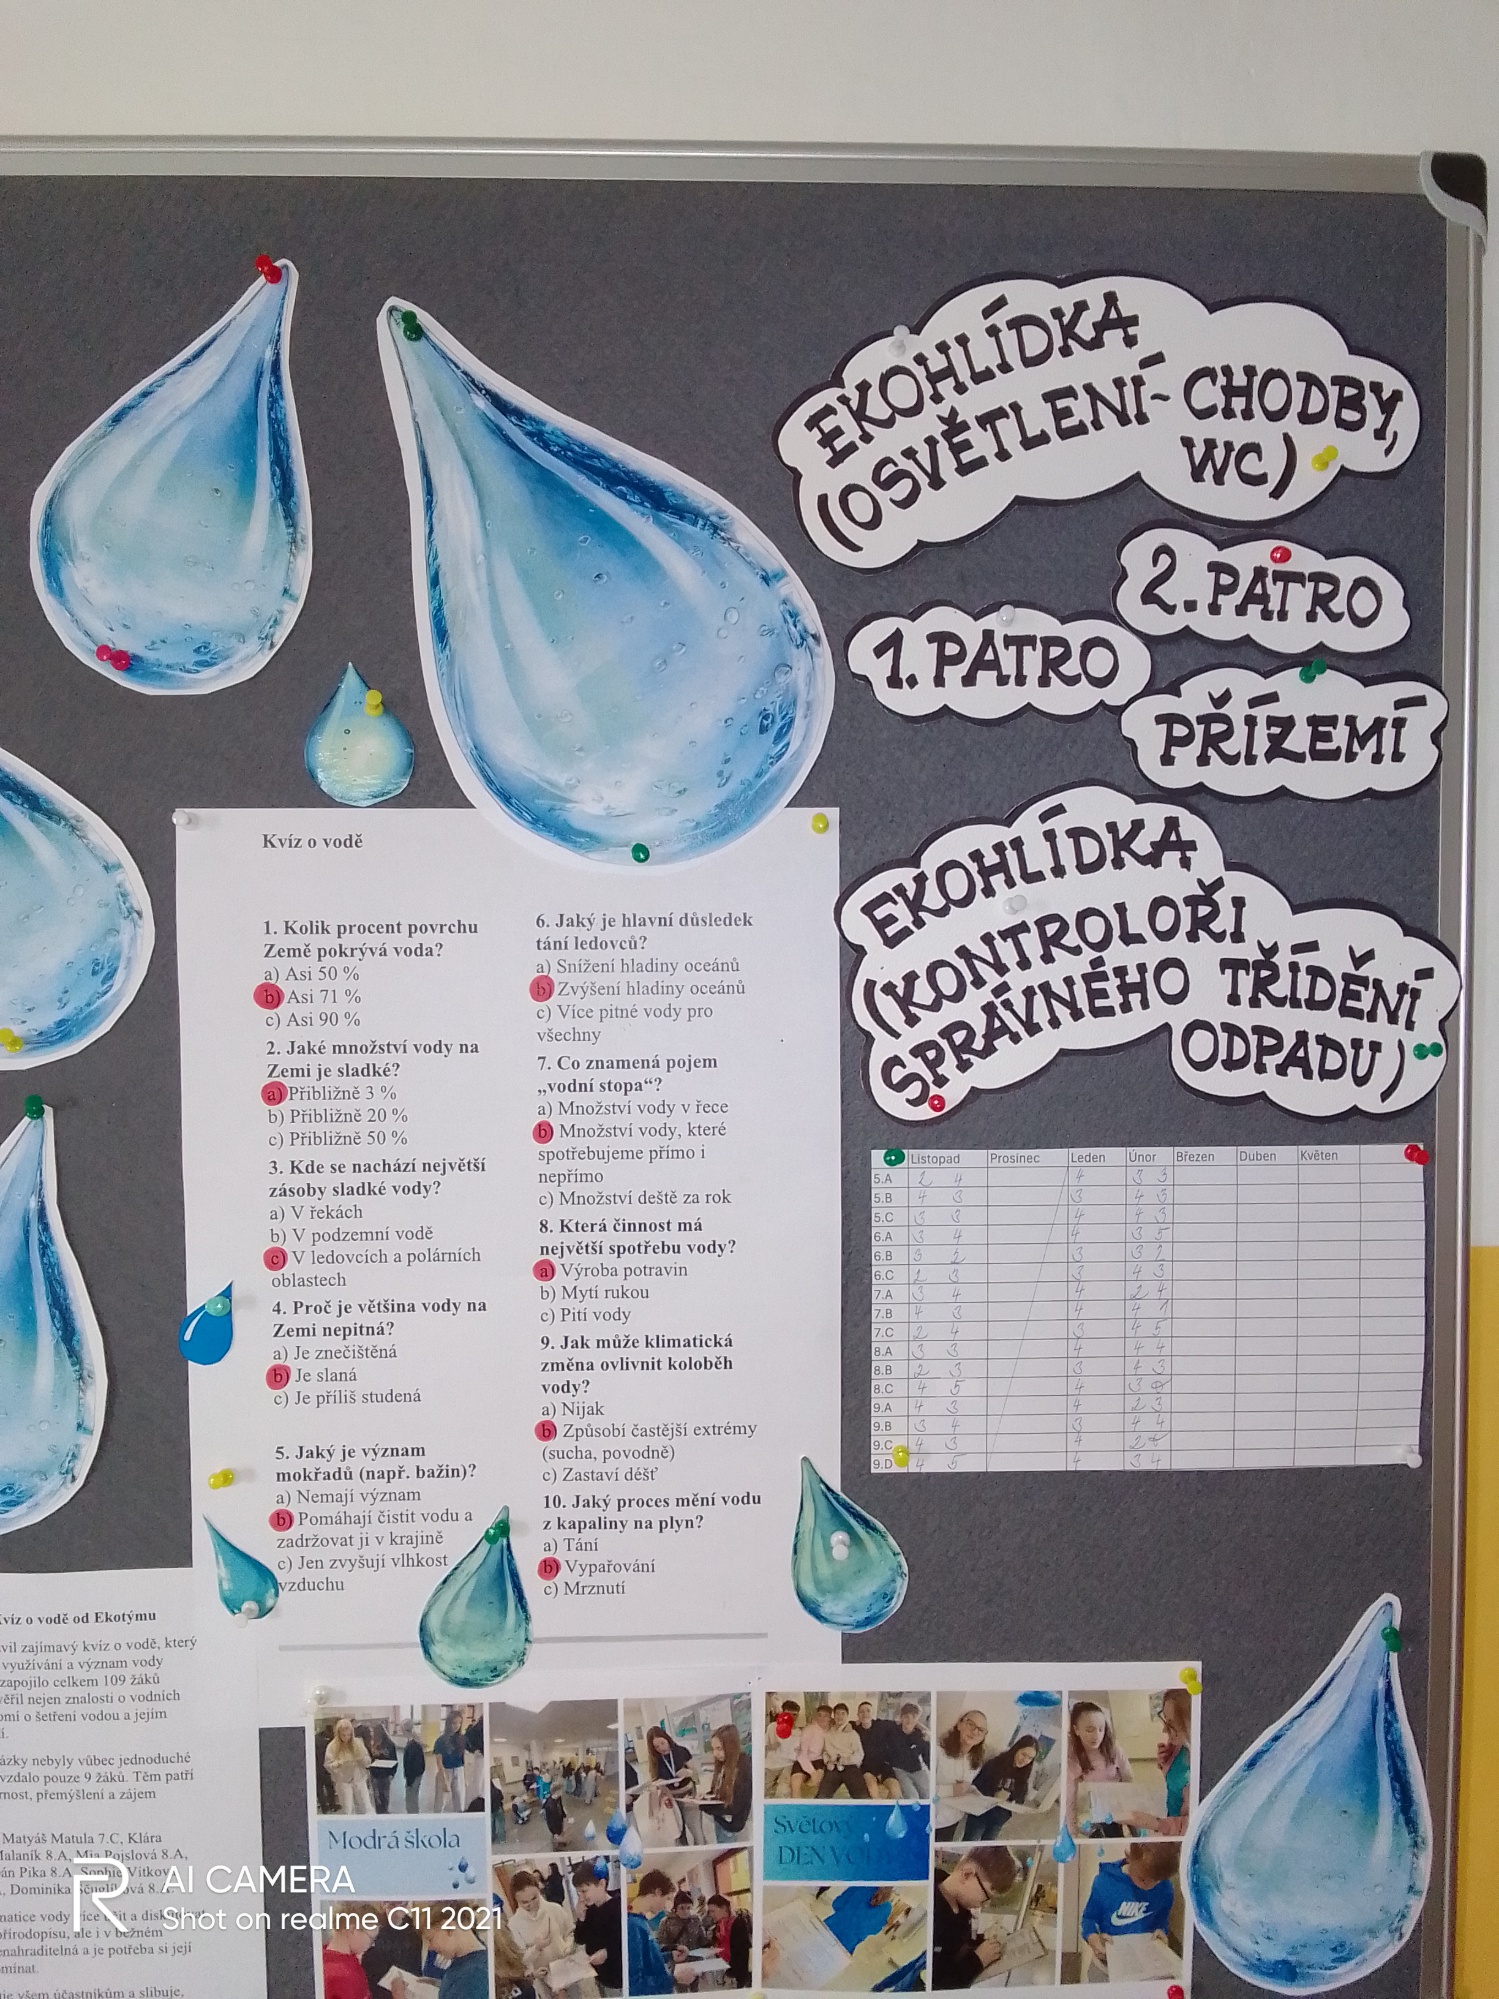 EKOHLÍDKA
(OSVĚTLENÍ- CHODBY,
WC)
2. PATRO
1. PATRO
PŘÍZEMÍ
EKOHLÍDKA
(KONTROLOŘI
SPRÁVNÉHO TŘÍDĚNÍ
ODPADU)
Kvíz o vodě
1. Kolik procent povrchu
Země pokrývá voda?
a) Asi 50 %
b) Asi 71 %
c) Asi 90 %
2. Jaké množství vody na
Zemi je sladké?
a) Přibližně 3 %
b) Přibližně 20 %
c) Přibližně 50 %
3. Kde se nachází největší
zásoby sladké vody?
a) V řekách
b) V podzemní vodě
c) V ledovcích a polárních
oblastech
4. Proč je většina vody na
Zemi nepitná?
a) Je znečištěná
b) Je slaná
c) Je příliš studená
5. Jaký je význam
mokřadů (např. bažin)?
a) Nemají význam
b) Pomáhají čistit vodu a
zadržovat ji v krajině
c) Jen zvyšují vlhkost
vzduchu
6. Jaký je hlavní důsledek
tání ledovců?
a) Snížení hladiny oceánů
b) Zvýšení hladiny oceánů
c) Více pitné vody pro
všechny
7. Co znamená pojem
„vodní stopa“?
a) Množství vody v řece
b) Množství vody, které
spotřebujeme přímo i
nepřímo
c) Množství deště za rok
8. Která činnost má
největší spotřebu vody?
a) Výroba potravin
b) Mytí rukou
c) Pití vody
9. Jak může klimatická
změna ovlivnit koloběh
vody?
a) Nijak
b) Způsobí častější extrémy
(sucha, povodně)
c) Zastaví déšť
10. Jaký proces mění vodu
z kapaliny na plyn?
a) Tání
b) Vypařování
c) Mrznutí
Listopad Prosinec Leden Únor Březen Duben Květen
5.A 2 4 4 3 3
5.B 4 3 3 4 3
5.C 3 3 4 4 3
6.A 3 4 4 3 5
6.B 3 2 3 3 2
6.C 2 3 3 4 3
7.A 3 4 4 2 4
7.B 4 3 4 4 1
7.C 2 4 3 4 5
8.A 3 3 4 4 4
8.B 2 3 3 4 3
8.C 4 5 4 3
9.A 4 3 4 2 3
9.B 3 4 3 4 4
9.C 4 3 4 2
9.D 4 5 4 3 4
Kvíz o vodě od Ekotýmu
zajímavý kvíz o vodě, který
využívání a význam vody
zapojilo celkem 109 žáků
nejen znalosti o vodních
o šetření vodou a jejím
nebyly vůbec jednoduché
pouze 9 žáků. Těm patří
přemýšlení a zájem
Matyáš Matula 7.C, Klára
8.A, Mia Pojslová 8.A,
Pika 8.A, Sophie
Dominika
vody více
ale i v běžném
a je potřeba si její
všem účastníkům a slibuje,
Modrá škola
Světový
DEN
NIKE
AI CAMERA
Shot on realme C11 2021